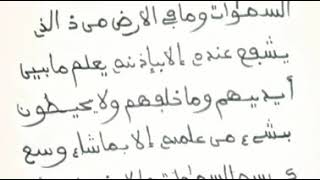 السمٰوات وما في الارض من ذ الذي
يشفع عنده إلا بإذنه يعلم ما بين
أيديهم وما خلفهم ولا يحيطون
بشيء من علمه إلا بما شاء وسع
السمٰوات